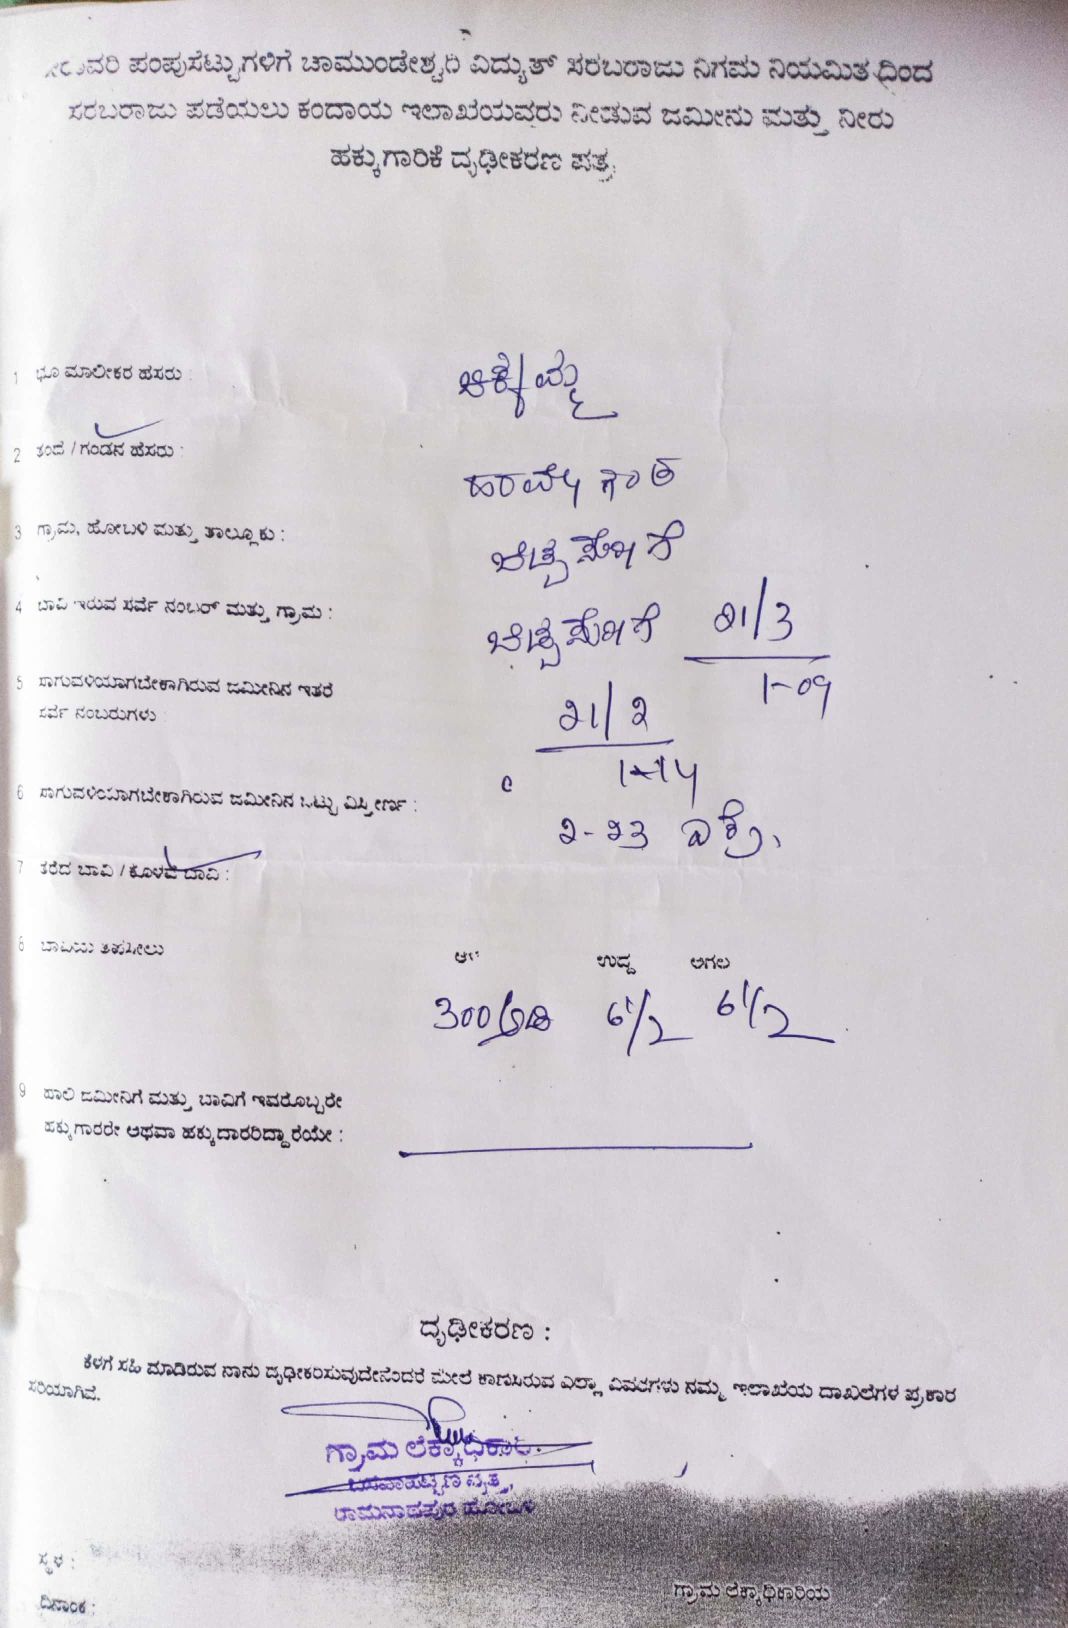 ನೀರಾವರಿ ಪಂಪುಸೆಟ್ಟುಗಳಿಗೆ ಚಾಮುಂಡೇಶ್ವರಿ ವಿದ್ಯುತ್ ಸರಬರಾಜು ನಿಗಮ ನಿಯಮಿತದಿಂದ
ಸರಬರಾಜು ಪಡೆಯಲು ಕಂದಾಯ ಇಲಾಖೆಯವರು ನೀಡುವ ಜಮೀನು ಮತ್ತು ನೀರು
ಹಕ್ಕುಗಾರಿಕೆ ದೃಢೀಕರಣ ಪತ್ರ
1 ಭೂ ಮಾಲೀಕರ ಹೆಸರು :
2 ತಂದೆ / ಗಂಡನ ಹೆಸರು :
3 ಗ್ರಾಮ, ಹೋಬಳಿ ಮತ್ತು ತಾಲ್ಲೂಕು :
4 ಬಾವಿ ಇರುವ ಸರ್ವೆ ನಂಬರ್ ಮತ್ತು ಗ್ರಾಮ : ೨೧/3
1-09
5 ಸಾಗುವಳಿಯಾಗಬೇಕಾಗಿರುವ ಜಮೀನಿನ ಇತರೆ
ಸರ್ವೆ ನಂಬರುಗಳು : ೨೧/೨
1-14
6 ಸಾಗುವಳಿಯಾಗಬೇಕಾಗಿರುವ ಜಮೀನಿನ ಒಟ್ಟು ವಿಸ್ತೀರ್ಣ : ೨-೨3 ಎಕ್ರೆ,
7 ತೆರೆದ ಬಾವಿ / ಕೊಳವೆ ಬಾವಿ :
8 ಬಾವಿಯ ತಪಸೀಲು ಆಳ ಉದ್ದ ಅಗಲ
300 ಅಡಿ 6 1/2 6 1/2
9 ಹಾಲಿ ಜಮೀನಿಗೆ ಮತ್ತು ಬಾವಿಗೆ ಇವರೊಬ್ಬರೇ
ಹಕ್ಕುಗಾರರೇ ಅಥವಾ ಹಕ್ಕುದಾರರಿದ್ದಾರೆಯೇ :
ದೃಢೀಕರಣ :
ಕೆಳಗೆ ಸಹಿ ಮಾಡಿರುವ ನಾನು ದೃಢೀಕರಿಸುವುದೇನೆಂದರೆ ಮೇಲೆ ಕಾಣಿಸಿರುವ ಎಲ್ಲಾ ವಿವರಗಳು ನಮ್ಮ ಇಲಾಖೆಯ ದಾಖಲೆಗಳ ಪ್ರಕಾರ
ಸರಿಯಾಗಿವೆ.
ಗ್ರಾಮ ಲೆಕ್ಕಾಧಿಕಾರಿ
ಬಸವಾಪಟ್ಟಣ ವೃತ್ತ,
ರಾಮನಾಥಪುರ ಹೋಬಳಿ
ಸ್ಥಳ :
ದಿನಾಂಕ :
ಗ್ರಾಮ ಲೆಕ್ಕಾಧಿಕಾರಿಯ